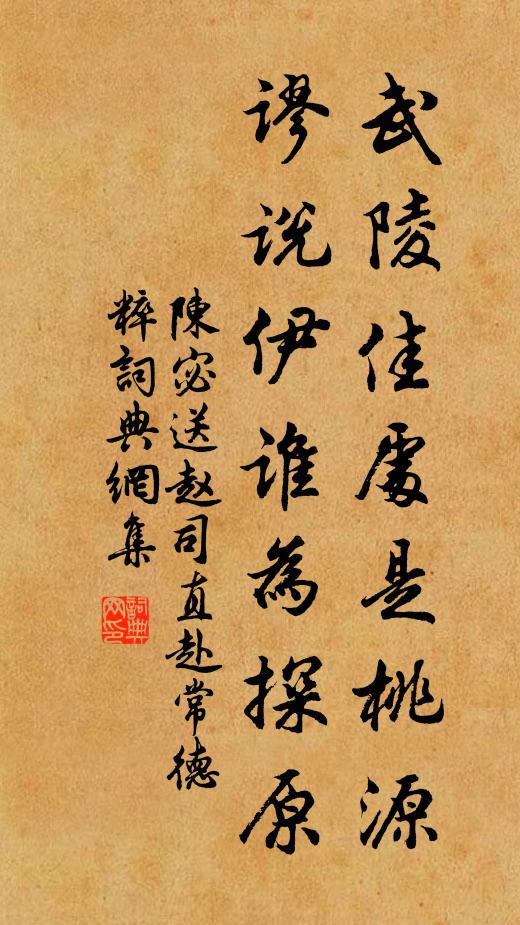 武陵佳處是桃源
谬说伊谁為探原
陳宓送赵司直赴常德
粹詞典網集
詞典網印